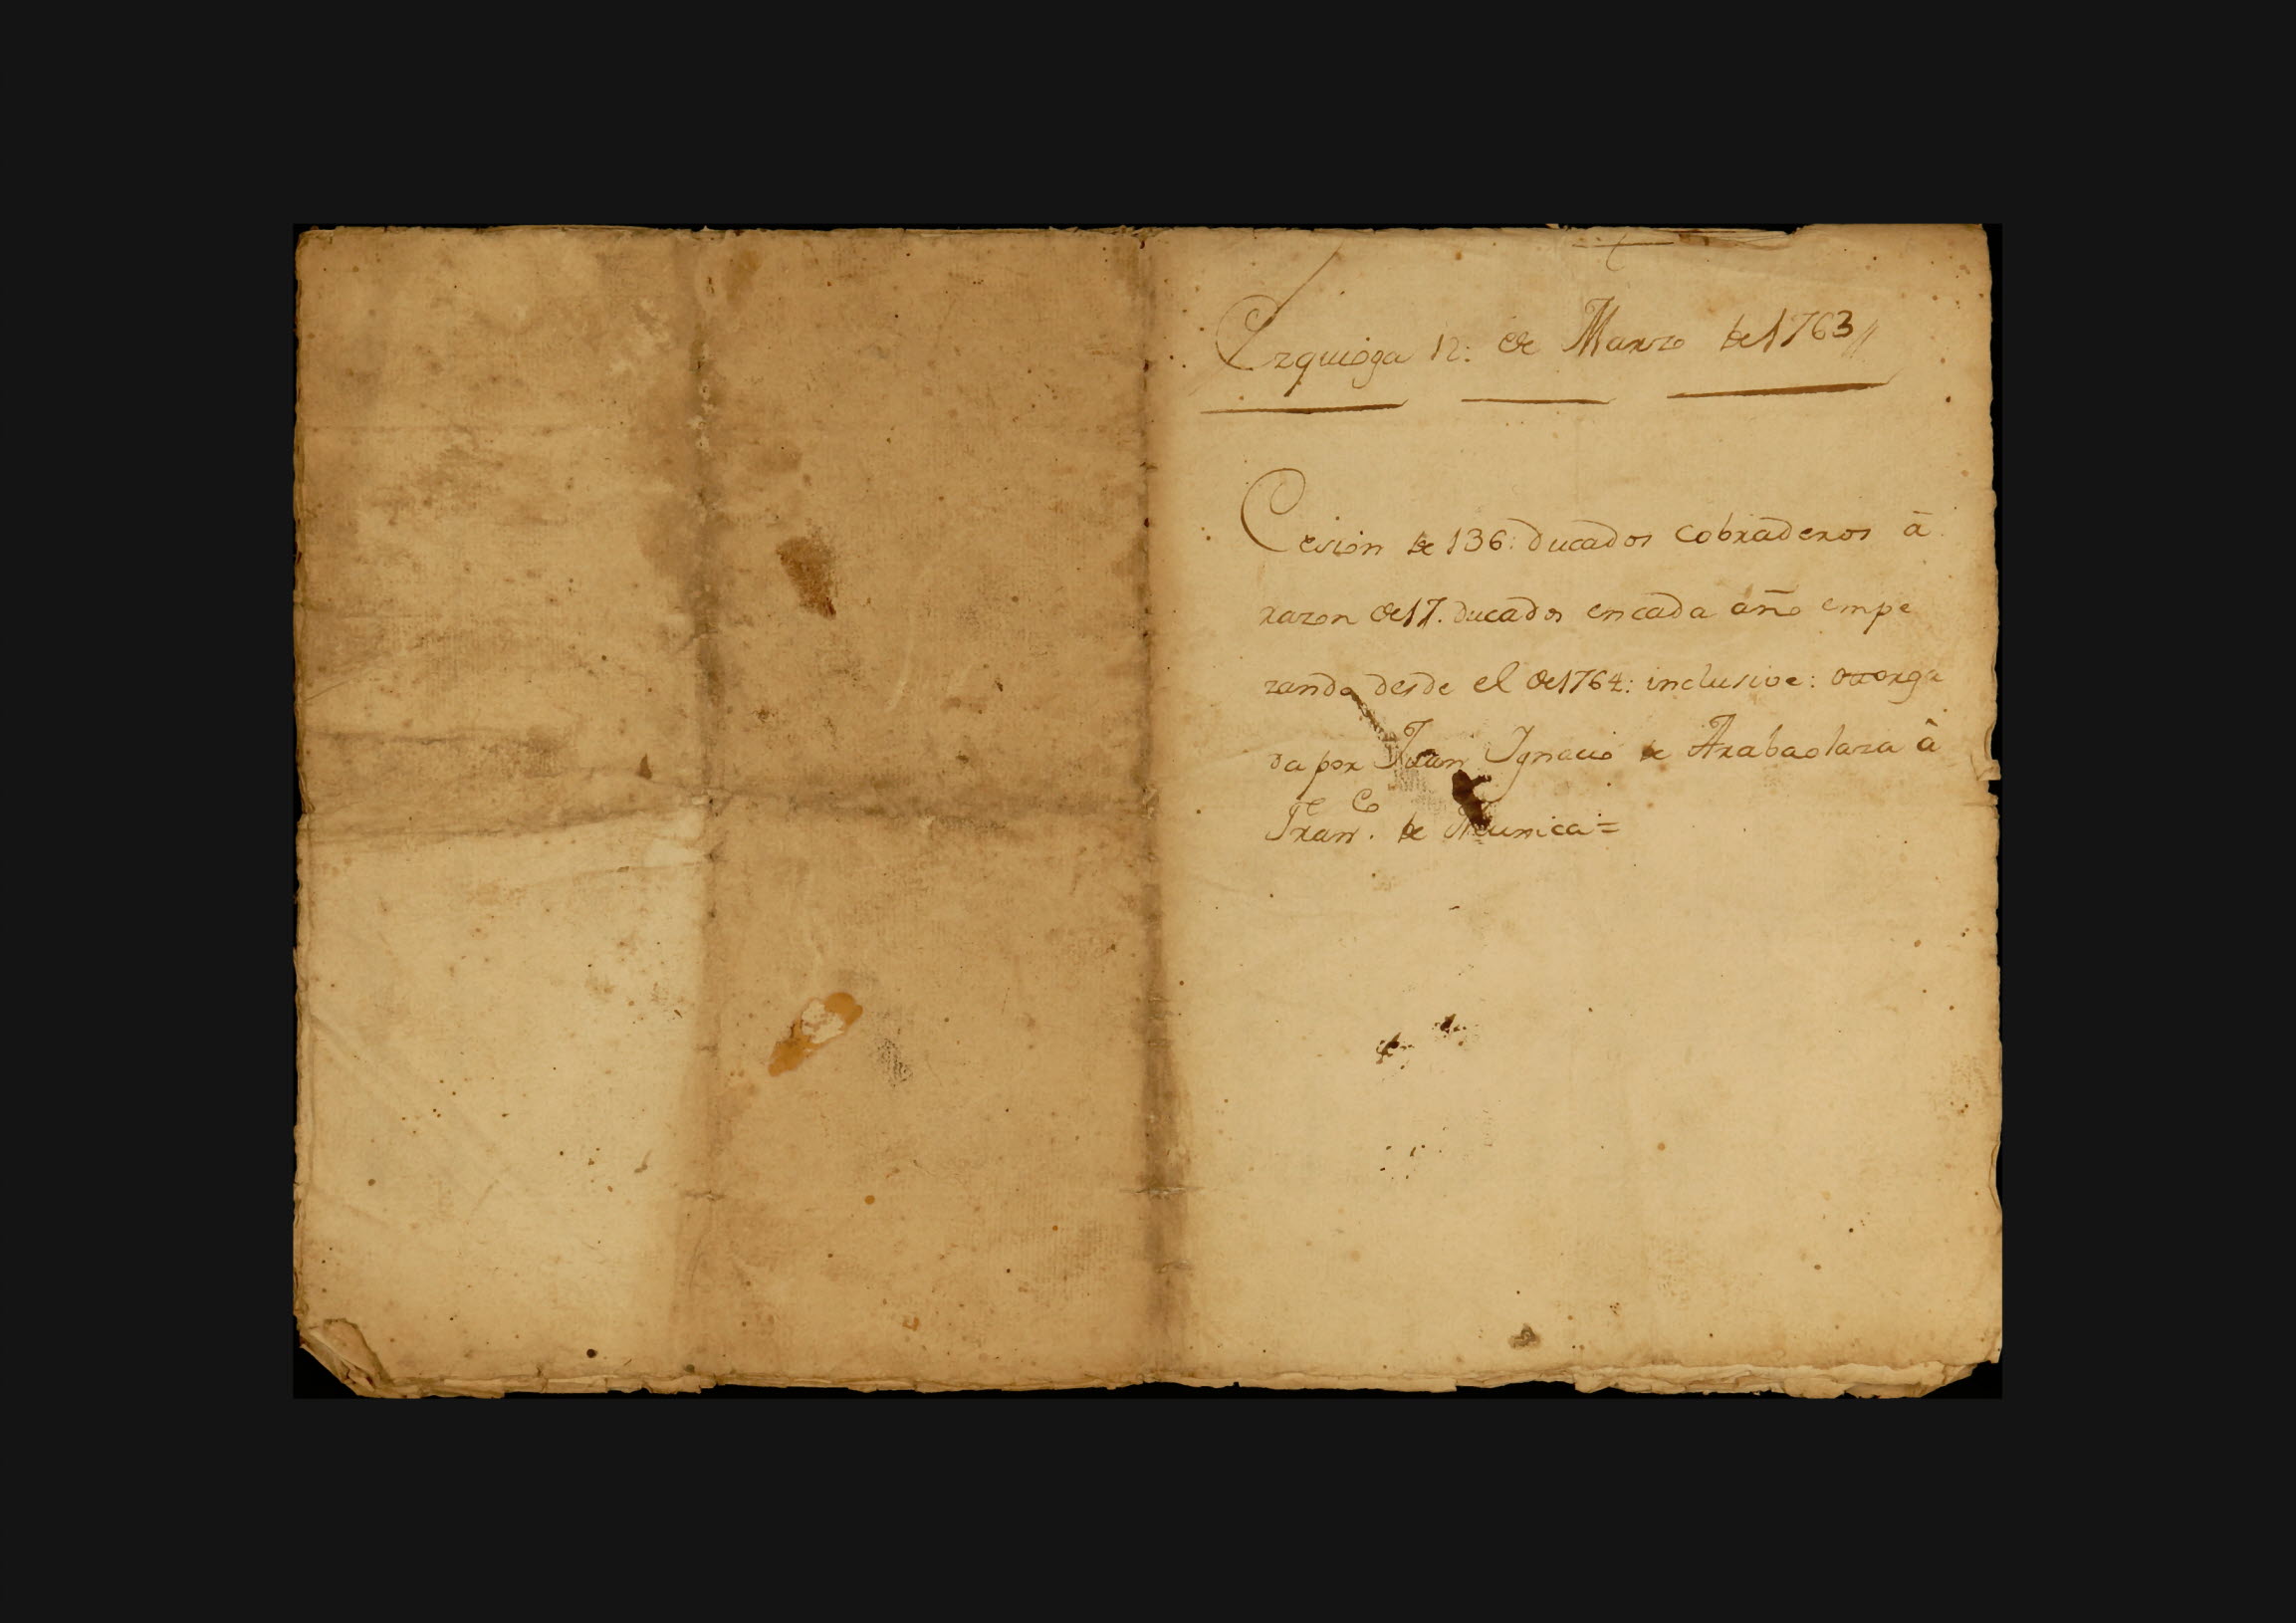 Ezquioga 12: de Marzo de 1763//
Cesion de 136: ducados cobraderos â
razon de 17. ducados en cada año empe
zando desde el de 1764: inclusive: otorga
da por Juan Ignacio de Arabaolaza â
Fran.co de